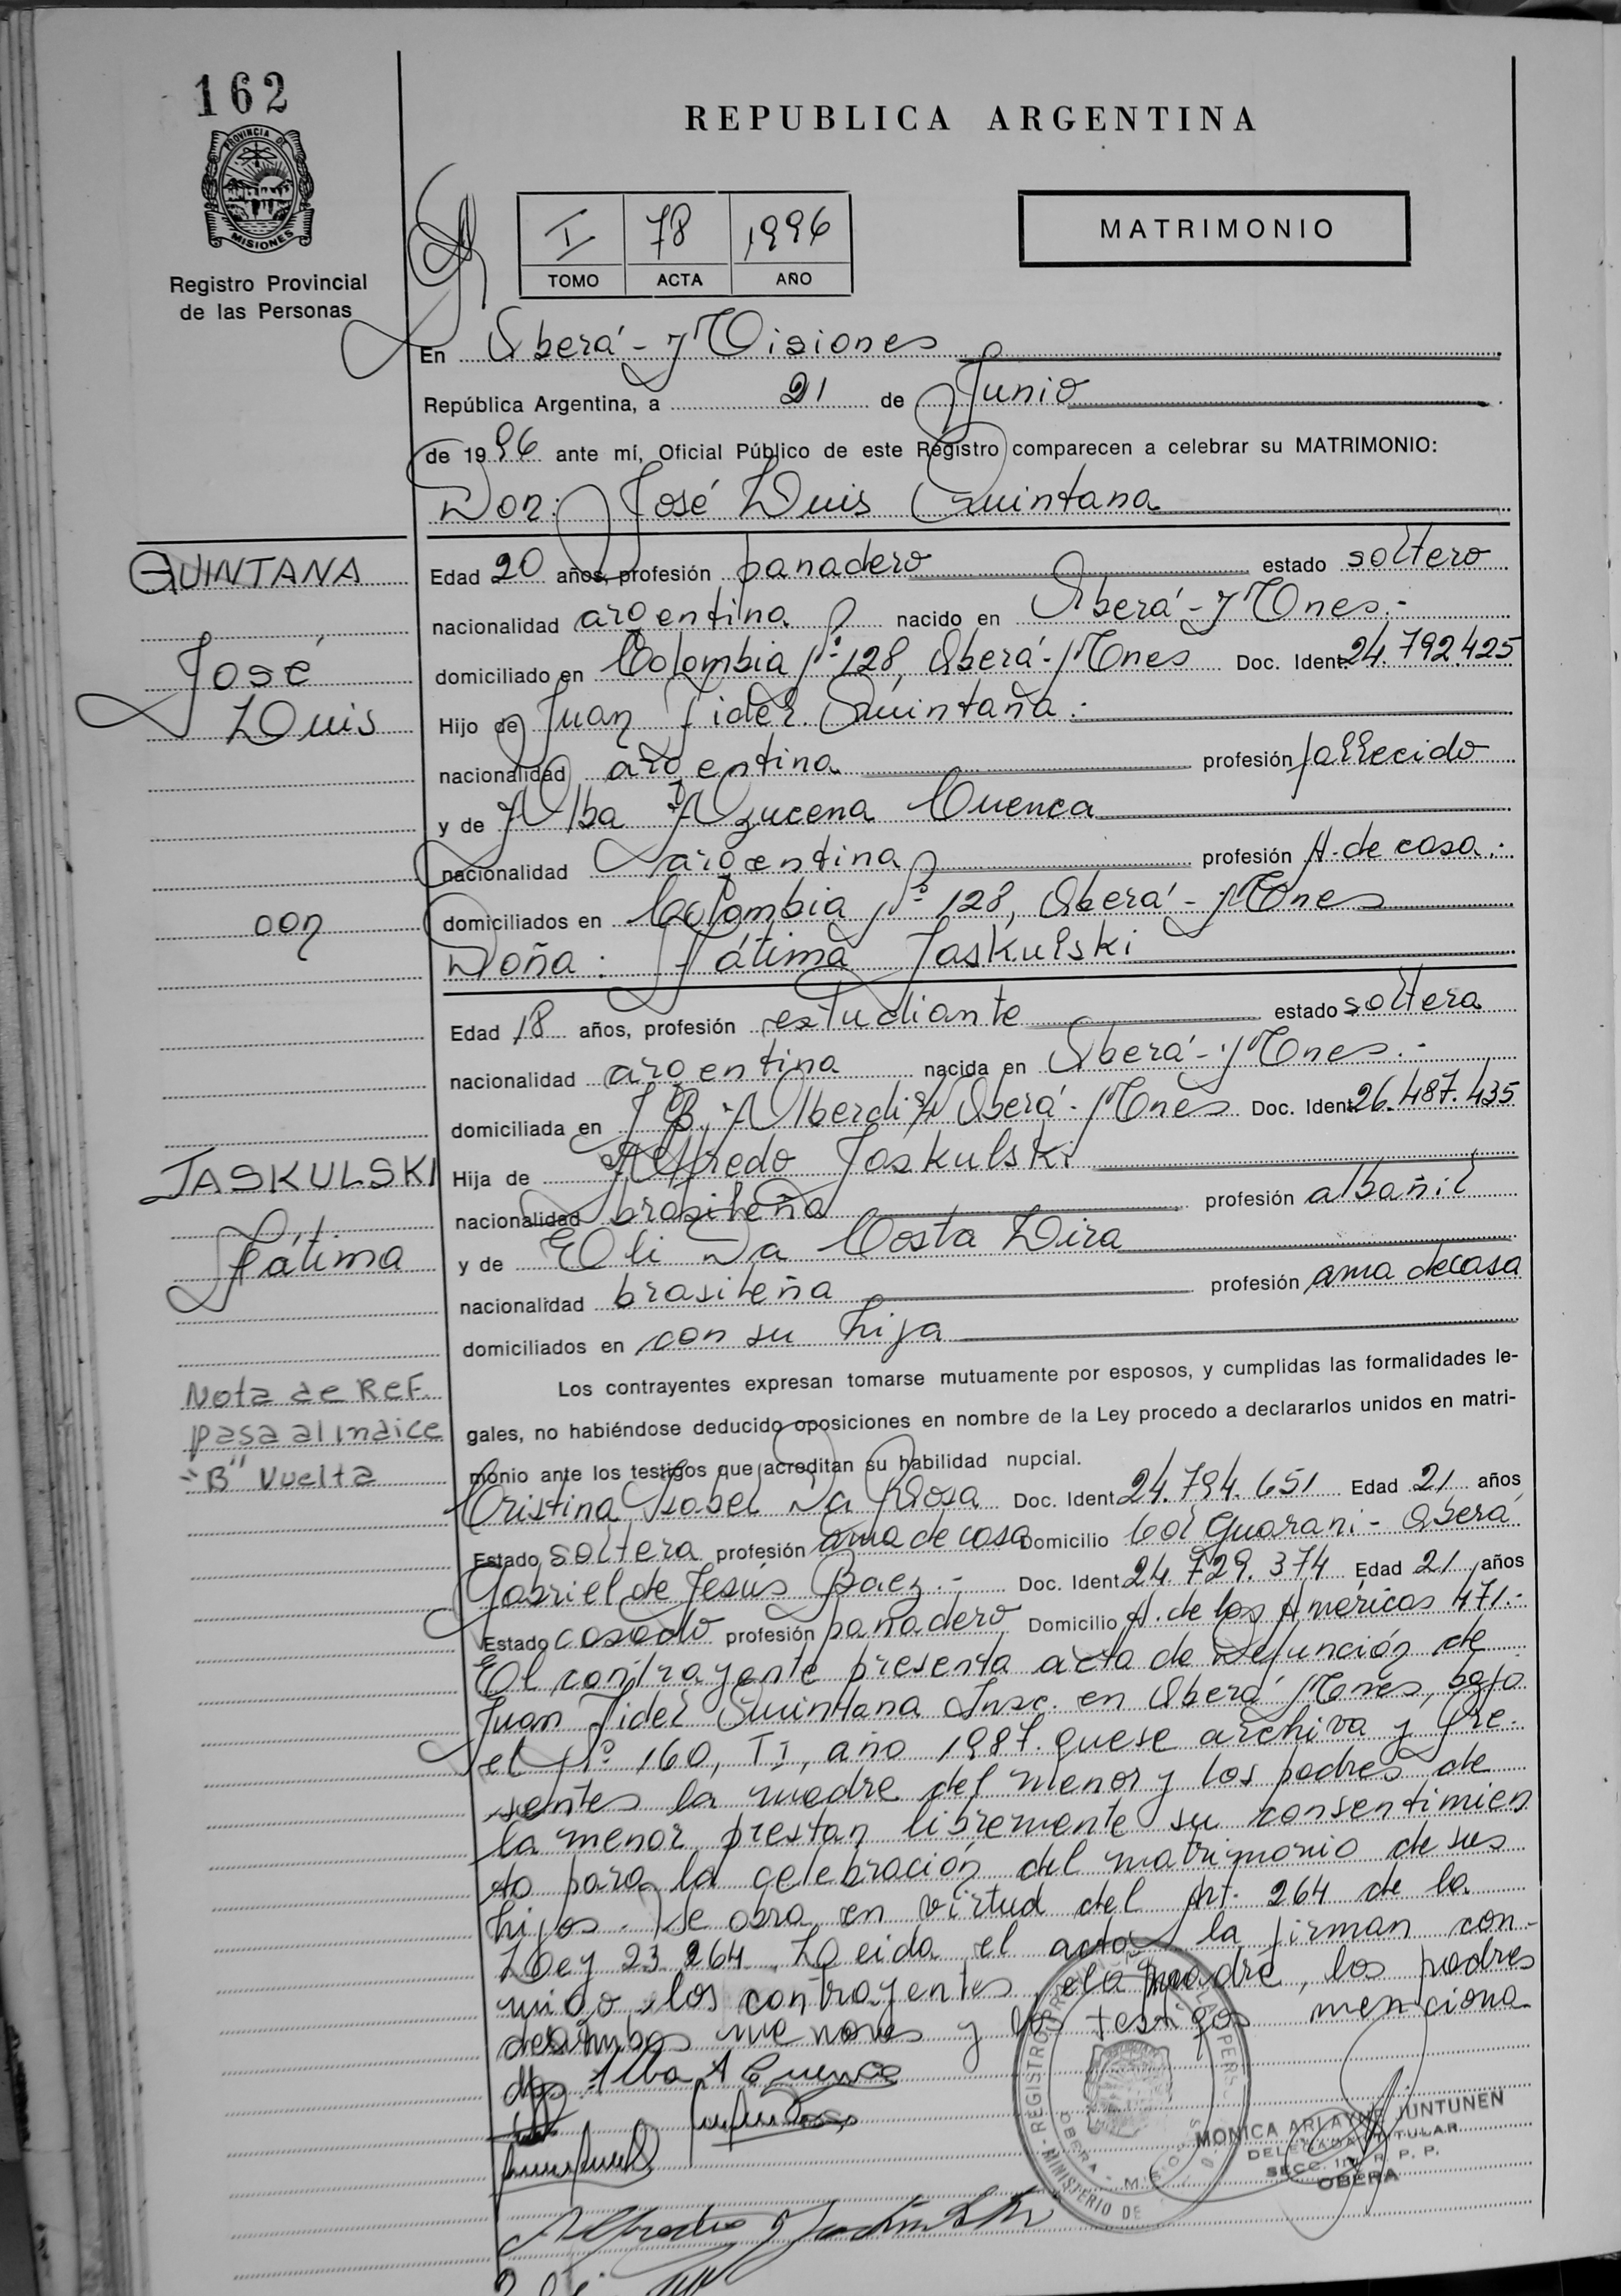 162
PROVINCIA DE
MISIONES
Registro Provincial
de las Personas
REPUBLICA ARGENTINA
I 78 1996
TOMO ACTA AÑO
MATRIMONIO
En Oberá - Misiones
República Argentina, a 21 de Junio
de 1996 ante mí, Oficial Público de este Registro comparecen a celebrar su MATRIMONIO:
Don: José Luis Quintana
QUINTANA
José
Luis
Edad 20 años, profesión panadero estado soltero
nacionalidad argentina nacido en Oberá - Mnes.-
domiciliado en Colombia Nº 128, Oberá - Mnes Doc. Ident. 24.792.425
Hijo de Juan Fidel Quintana.-
nacionalidad argentina profesión fallecido
y de Alba Azucena Cuenca
nacionalidad argentina profesión A. de casa.-
domiciliados en Colombia Nº 128, Oberá - Mnes
con
Doña: Fátima Jaskulski
Edad 18 años, profesión estudiante estado soltera
nacionalidad argentina nacida en Oberá - Mnes.-
domiciliada en J.B. Alberdi s/n Oberá - Mnes Doc. Ident. 26.487.435
JASKULSKI
Fátima
Hija de Alfredo Jaskulski
nacionalidad brasileña profesión albañil
y de Eli Da Costa Lira
nacionalidad brasileña profesión ama de casa
domiciliados en con su hija
Nota de Ref.
pasa al indice
"B" Vuelta
Los contrayentes expresan tomarse mutuamente por esposos, y cumplidas las formalidades le-
gales, no habiéndose deducido oposiciones en nombre de la Ley procedo a declararlos unidos en matri-
monio ante los testigos que acreditan su habilidad nupcial.
Cristina Isabel Da Rosa Doc. Ident. 24.794.651 Edad 21 años
Estado soltera profesión ama de casa Domicilio Col Guarani - Oberá
Gabriel de Jesús Baez.- Doc. Ident. 24.729.374 Edad 21 años
Estado casado profesión panadero Domicilio A. de las Américas 471.-
El contrayente presenta acta de Defunción de
Juan Fidel Quintana Insc. en Oberá Mnes, bajo
el Nº 160, TI, año 1987. que se archiva y Pre-
sentes la madre del menor y los padres de
la menor prestan libremente su consentimien
to para la celebración del matrimonio de sus
hijos. Se obra en virtud del Art. 264 de la
Ley 23.264. Leida el acta la firman con-
migo, los contrayentes, la madre, los padres
de ambos menores y los testigos menciona
dos. Alba A Cuenca
REGISTRO
OBERA - MISIONES
MINISTERIO DE
MONICA ARLAYNE JUNTUNEN
DELEGADA TITULAR
OBERA
Alfredo Jaskulski